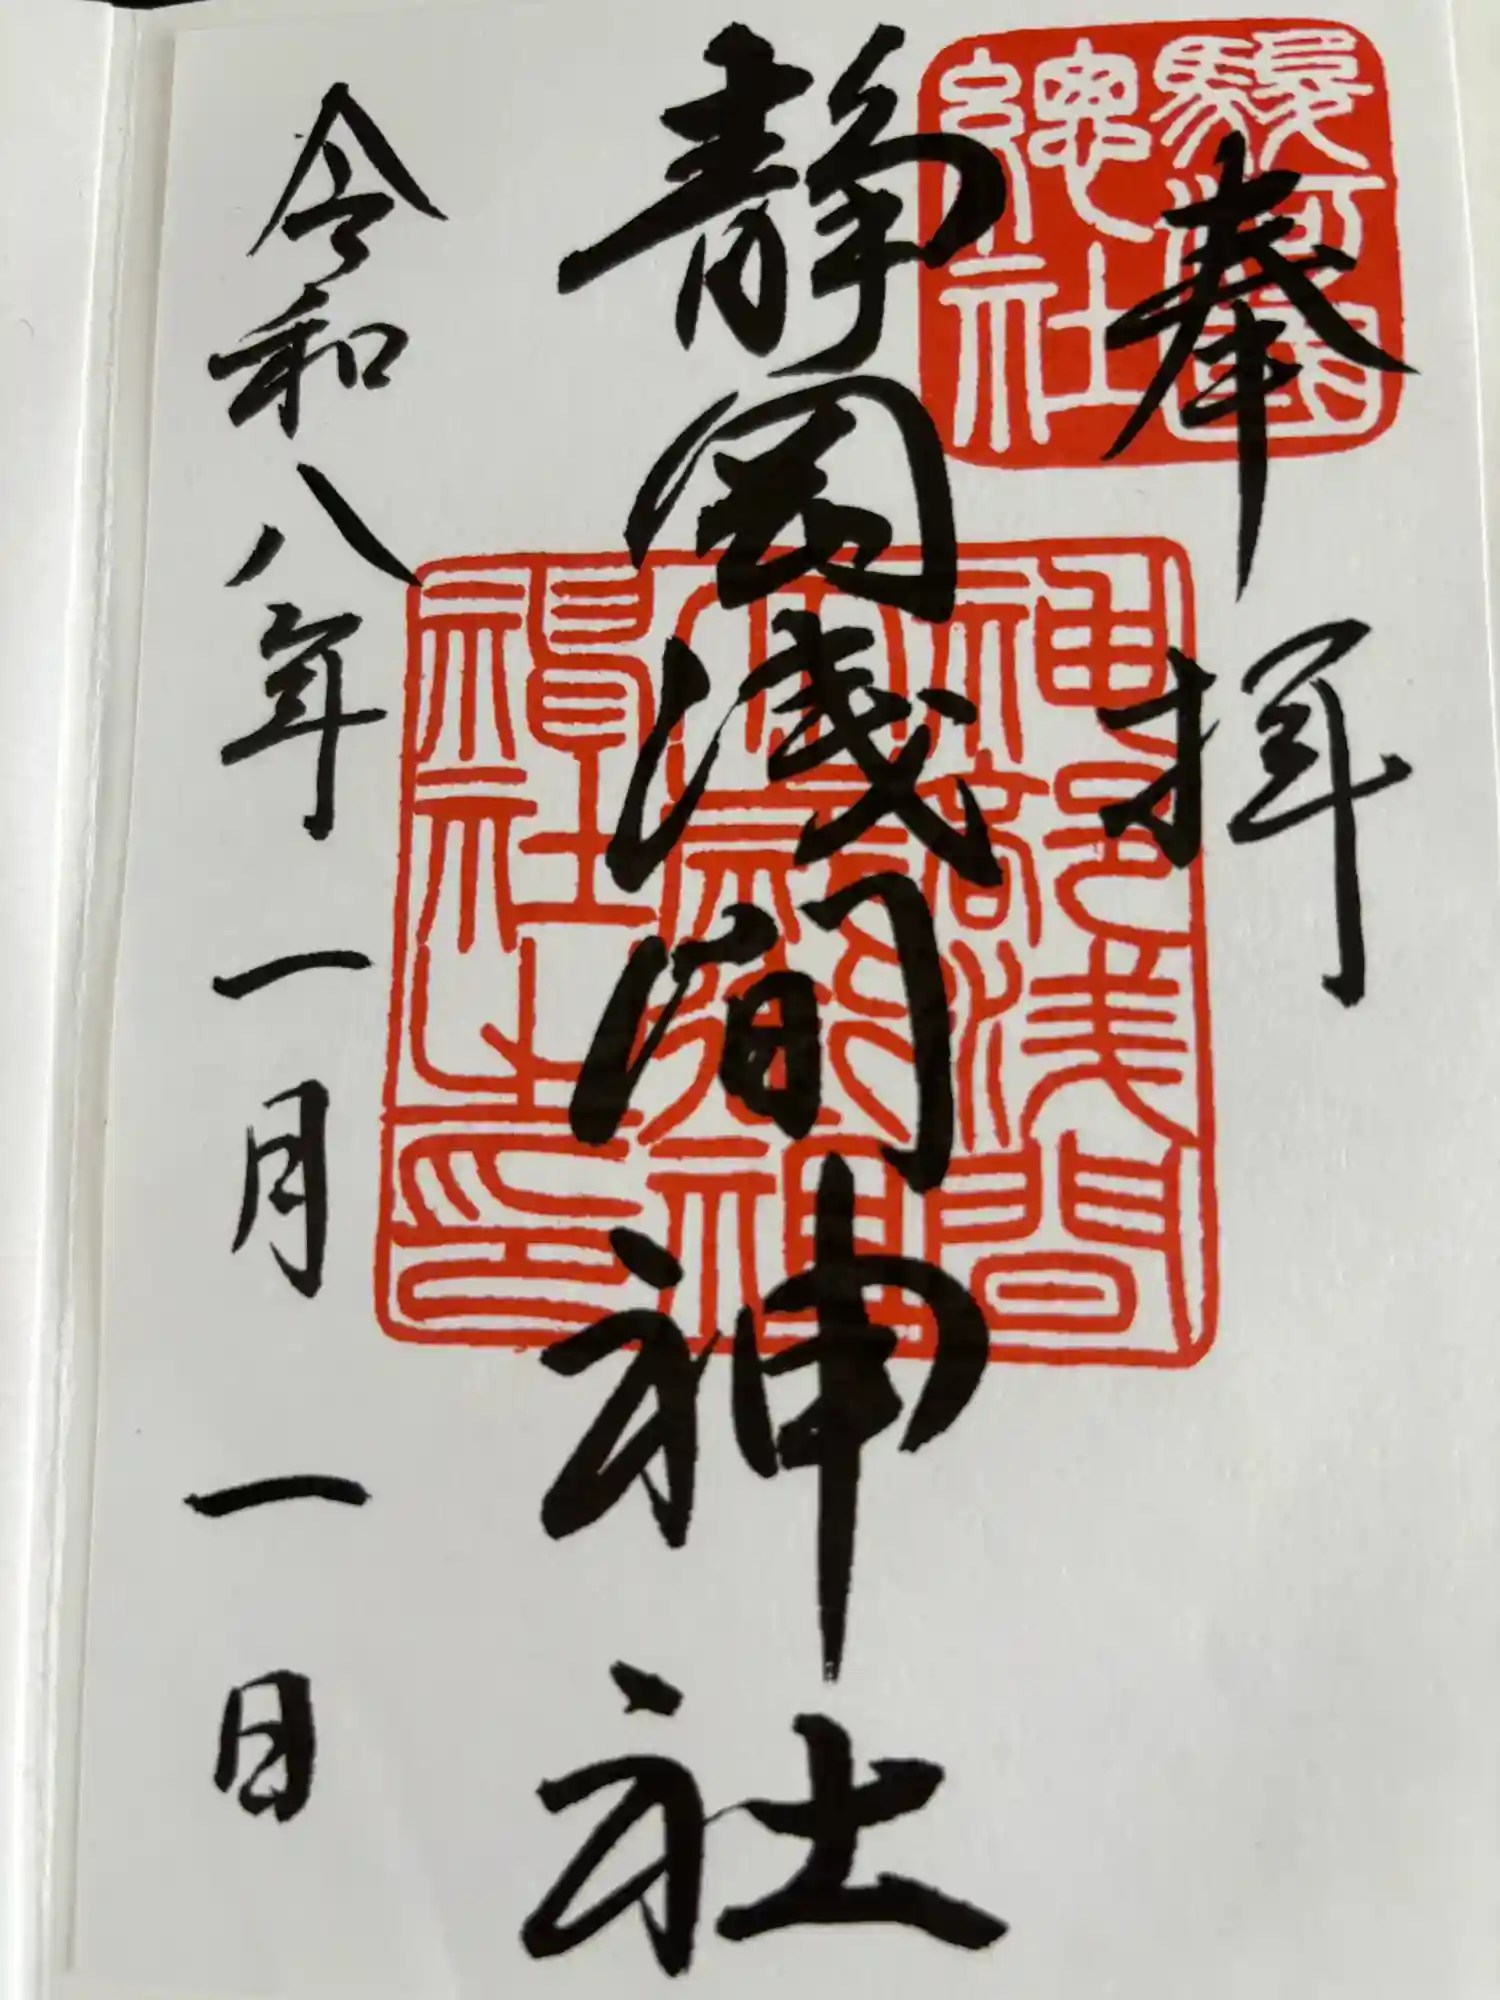 奉拝
駿河國
總社
静岡浅間神社
神部浅間
大歳御祖
神社之印
令和八年一月一日